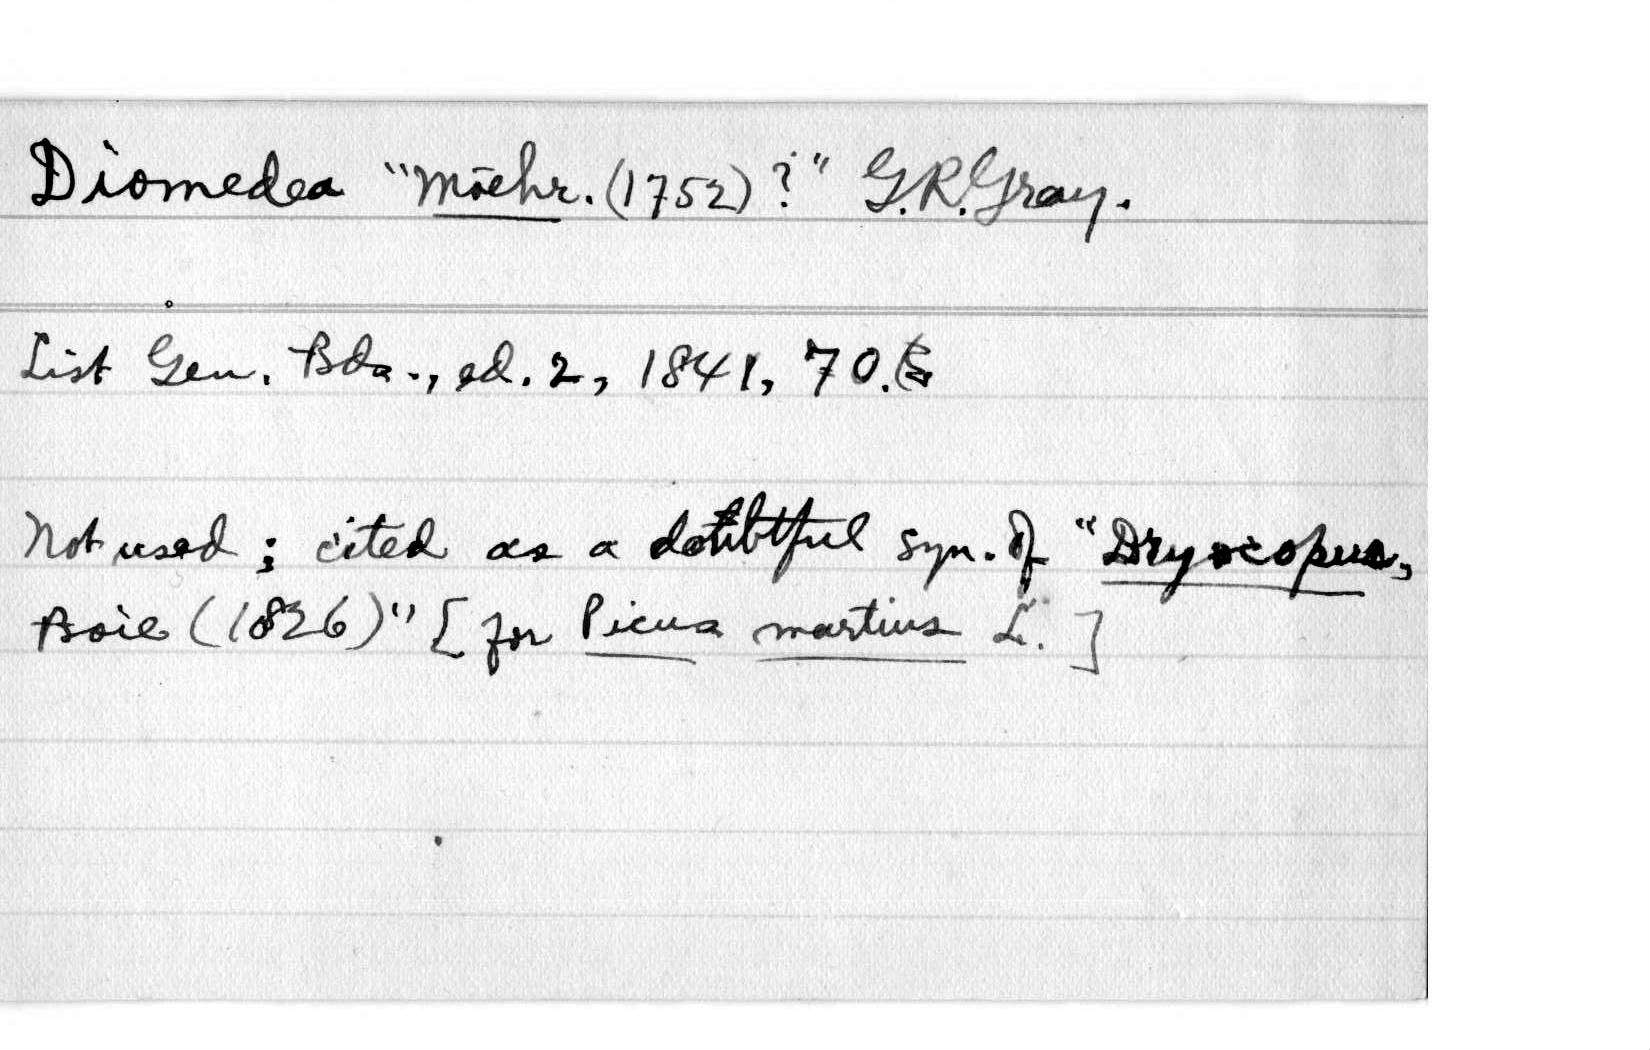 Diomedea "Möehr. (1752)?" G.R. Gray.
List Gen. Bds., ed. 2, 1841, 70.
Not used; cited as a doubtful syn. of "Dryocopus,
Boie (1826)" [for Picus martius L.]